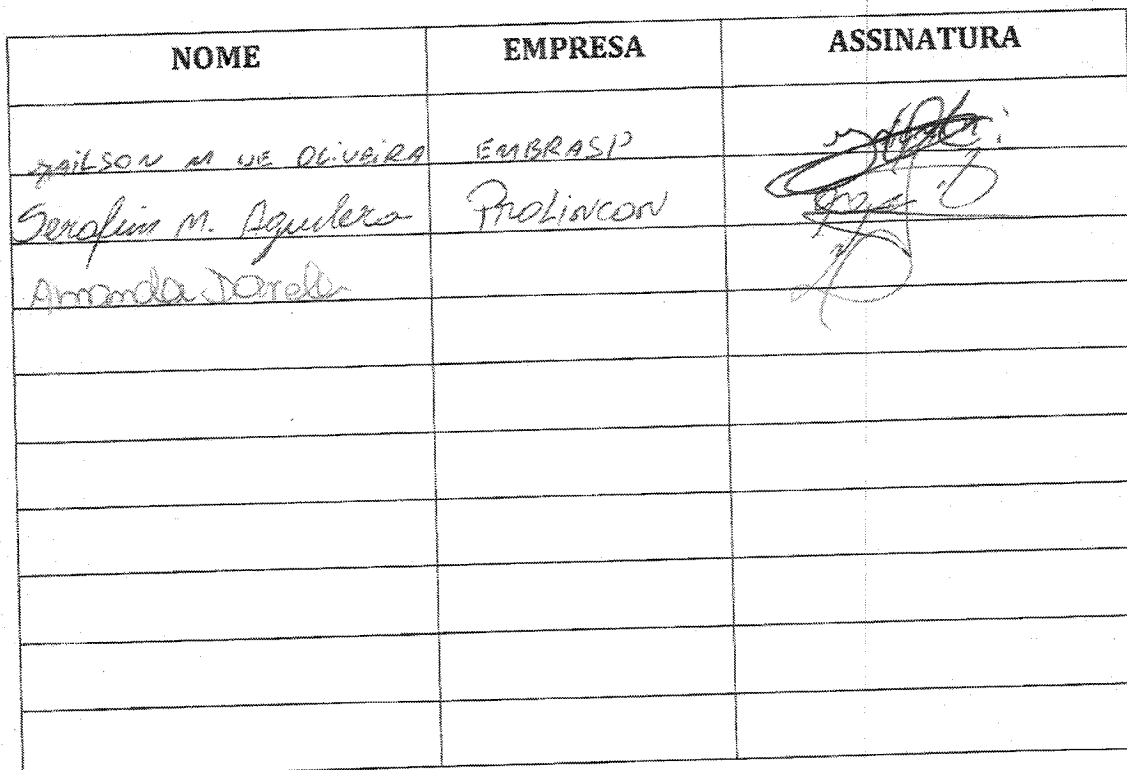 NOME EMPRESA ASSINATURA
M DE OLIVEIRA EMBRASP
Serafim M. Aguilera PROLINCON
Amanda